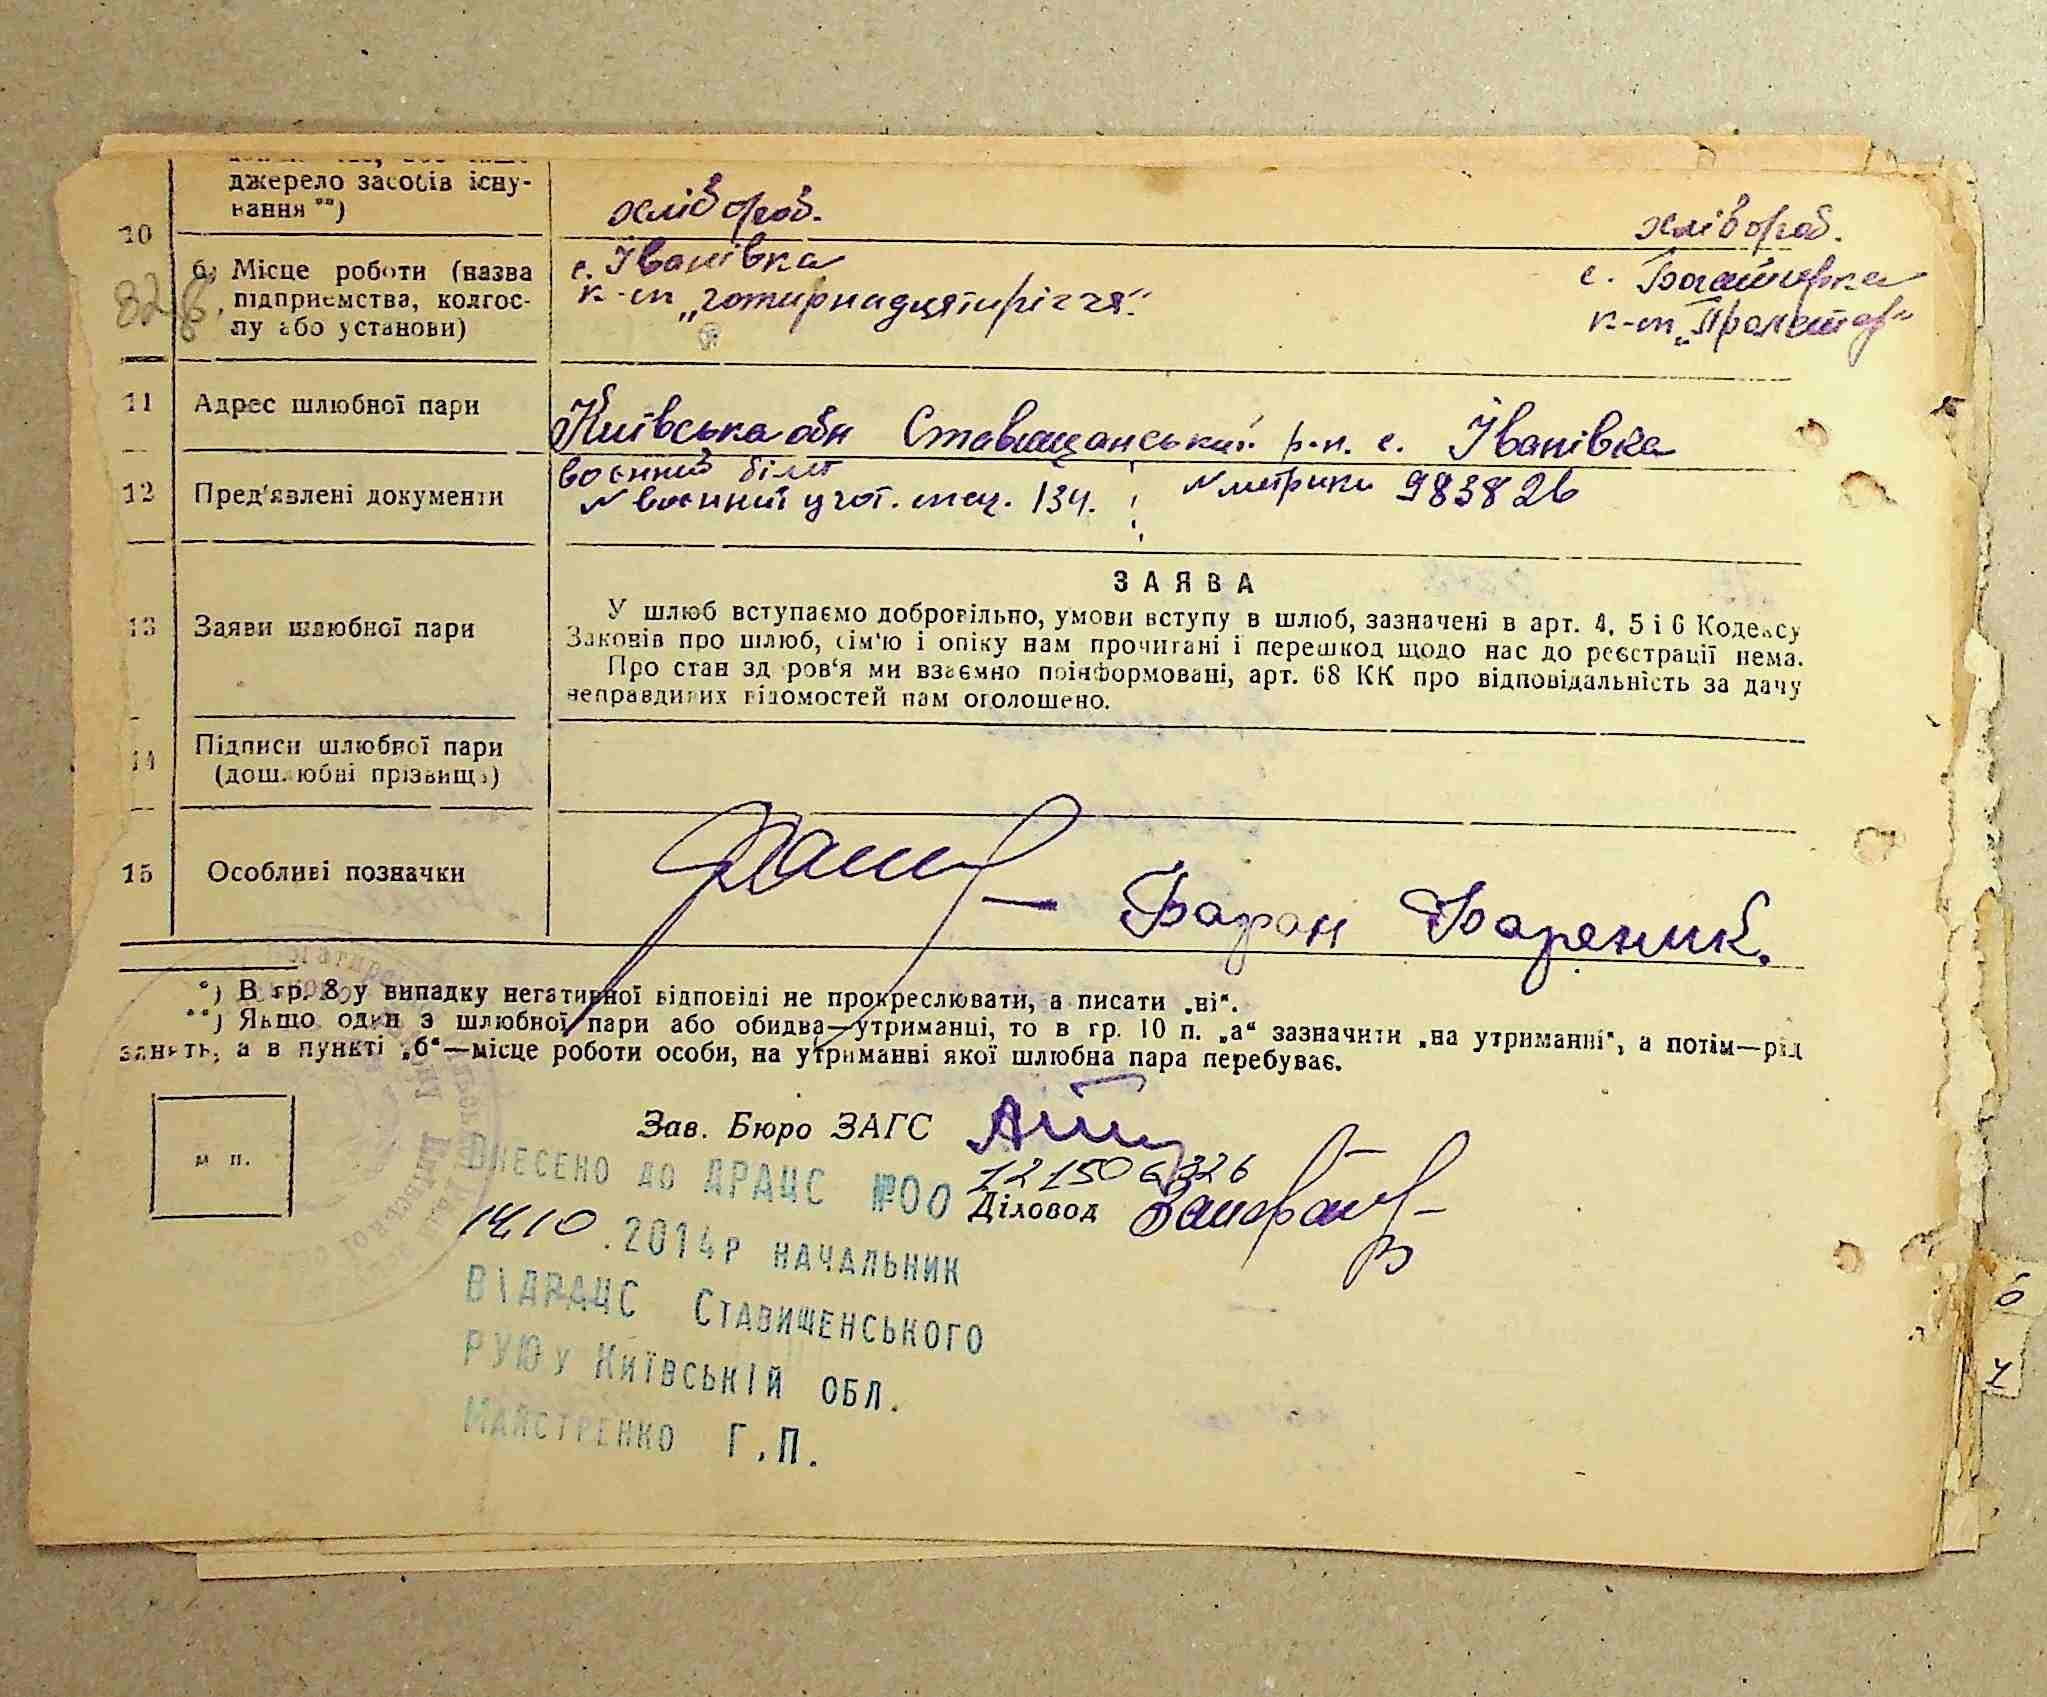 джерело засобів існу-
вання **)
хлібороб.
хлібороб.
10
б) Місце роботи (назва
підприємства, колгос-
пу або установи)
с. Іванівка
к-т „чотирнадцятиріччя“
с. Богатирка
к-т „Пролетар“
82
11 Адрес шлюбної пари
Київська обл Ставищанський р-н. с. Іванівка
12 Пред'явлені документи
воєнний білет
№ воєнної учот. спец. 134. ; № метрики 983826
13 Заяви шлюбної пари
ЗАЯВА
У шлюб вступаємо добровільно, умови вступу в шлюб, зазначені в арт. 4, 5 і 6 Кодексу
Законів про шлюб, сім'ю і опіку нам прочитані і перешкод щодо нас до реєстрації нема.
Про стан здоров'я ми взаємно поінформовані, арт. 68 КК про відповідальність за дачу
неправдивих відомостей нам оголошено.
14 Підписи шлюбної пари
(дошлюбні прізвища)
15 Особливі позначки
*) В гр. 8 у випадку негативної відповіді не прокреслювати, а писати „ні“.
**) Якщо один з шлюбної пари або обидва—утриманці, то в гр. 10 п. „а“ зазначити „на утриманні“, а потім—рід
занять, а в пункті „б“—місце роботи особи, на утриманні якої шлюбна пара перебуває.
м п.
Зав. Бюро ЗАГС
Внесено до ДРАЦС №00 121506326
Діловод
14.10.2014р начальник
ВіДРАЦС Ставищенського
РУЮ у Київській обл.
Майстренко Г.П.